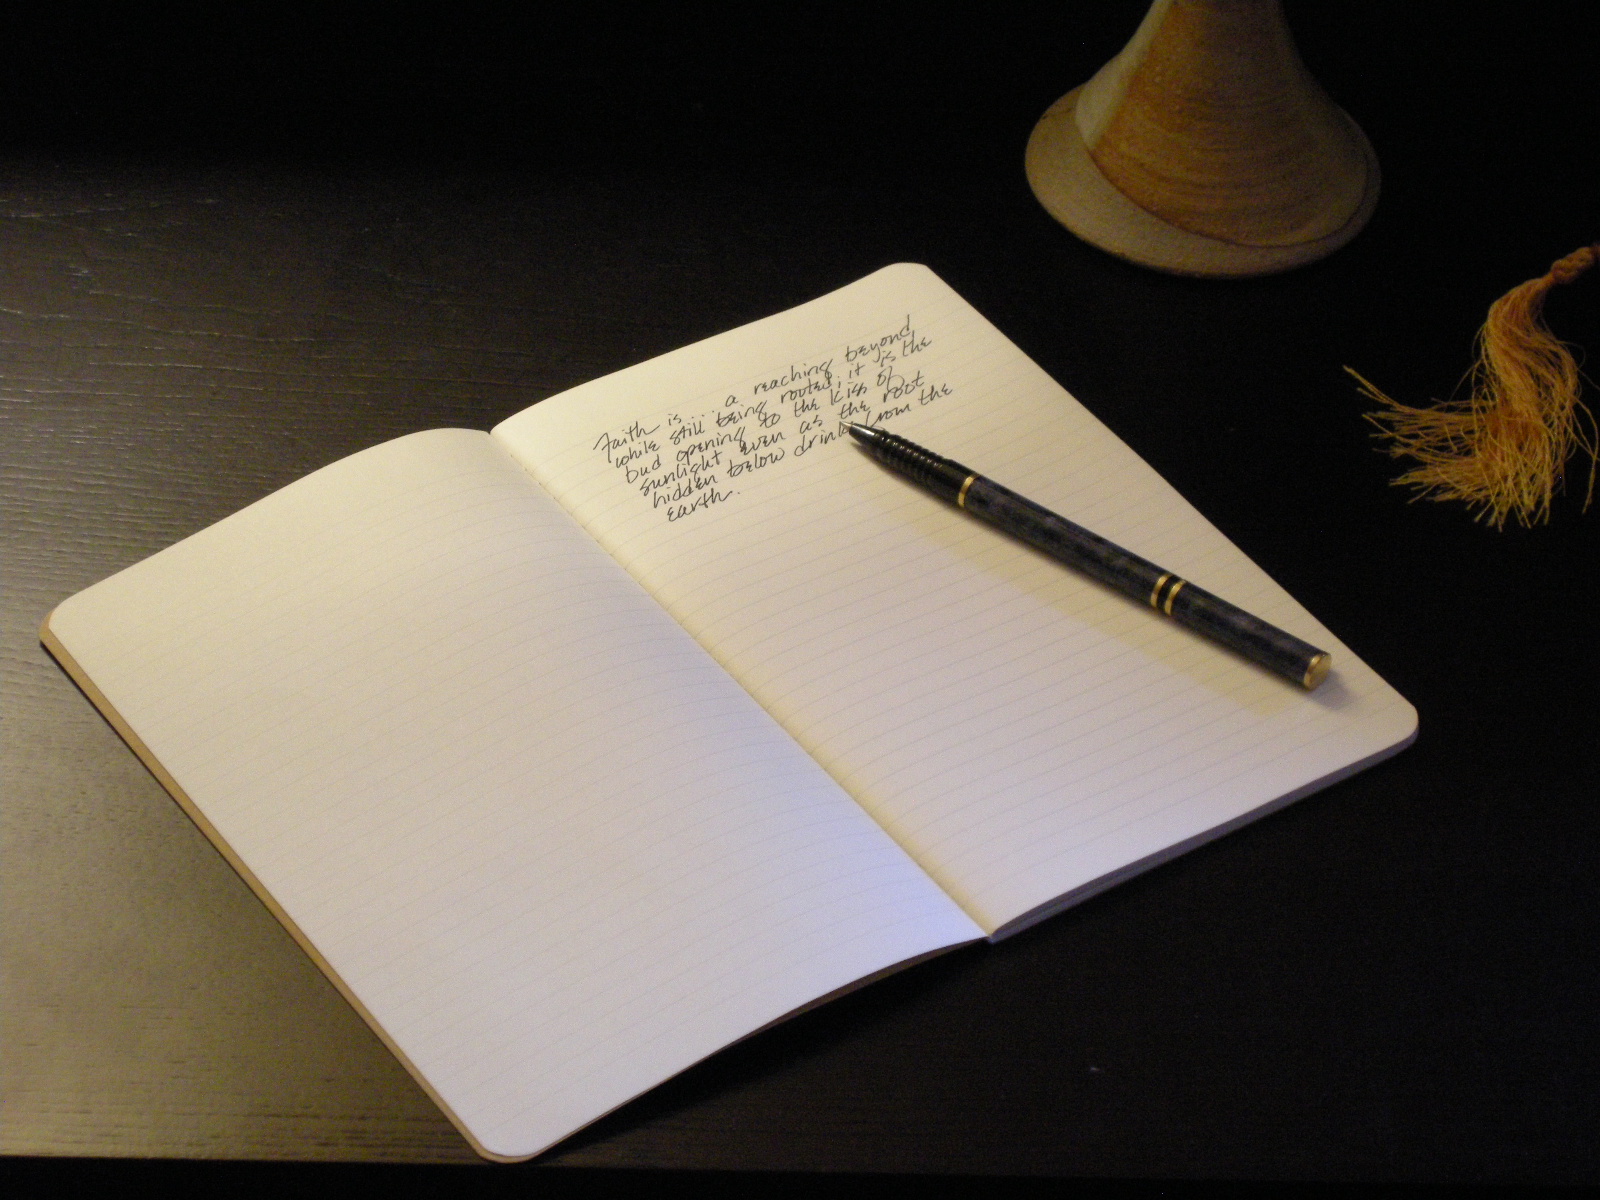 Faith is... a reaching beyond
while still being rooted; it is the
bud opening to the kiss of
sunlight even as the root
hidden below drinks from the
earth.